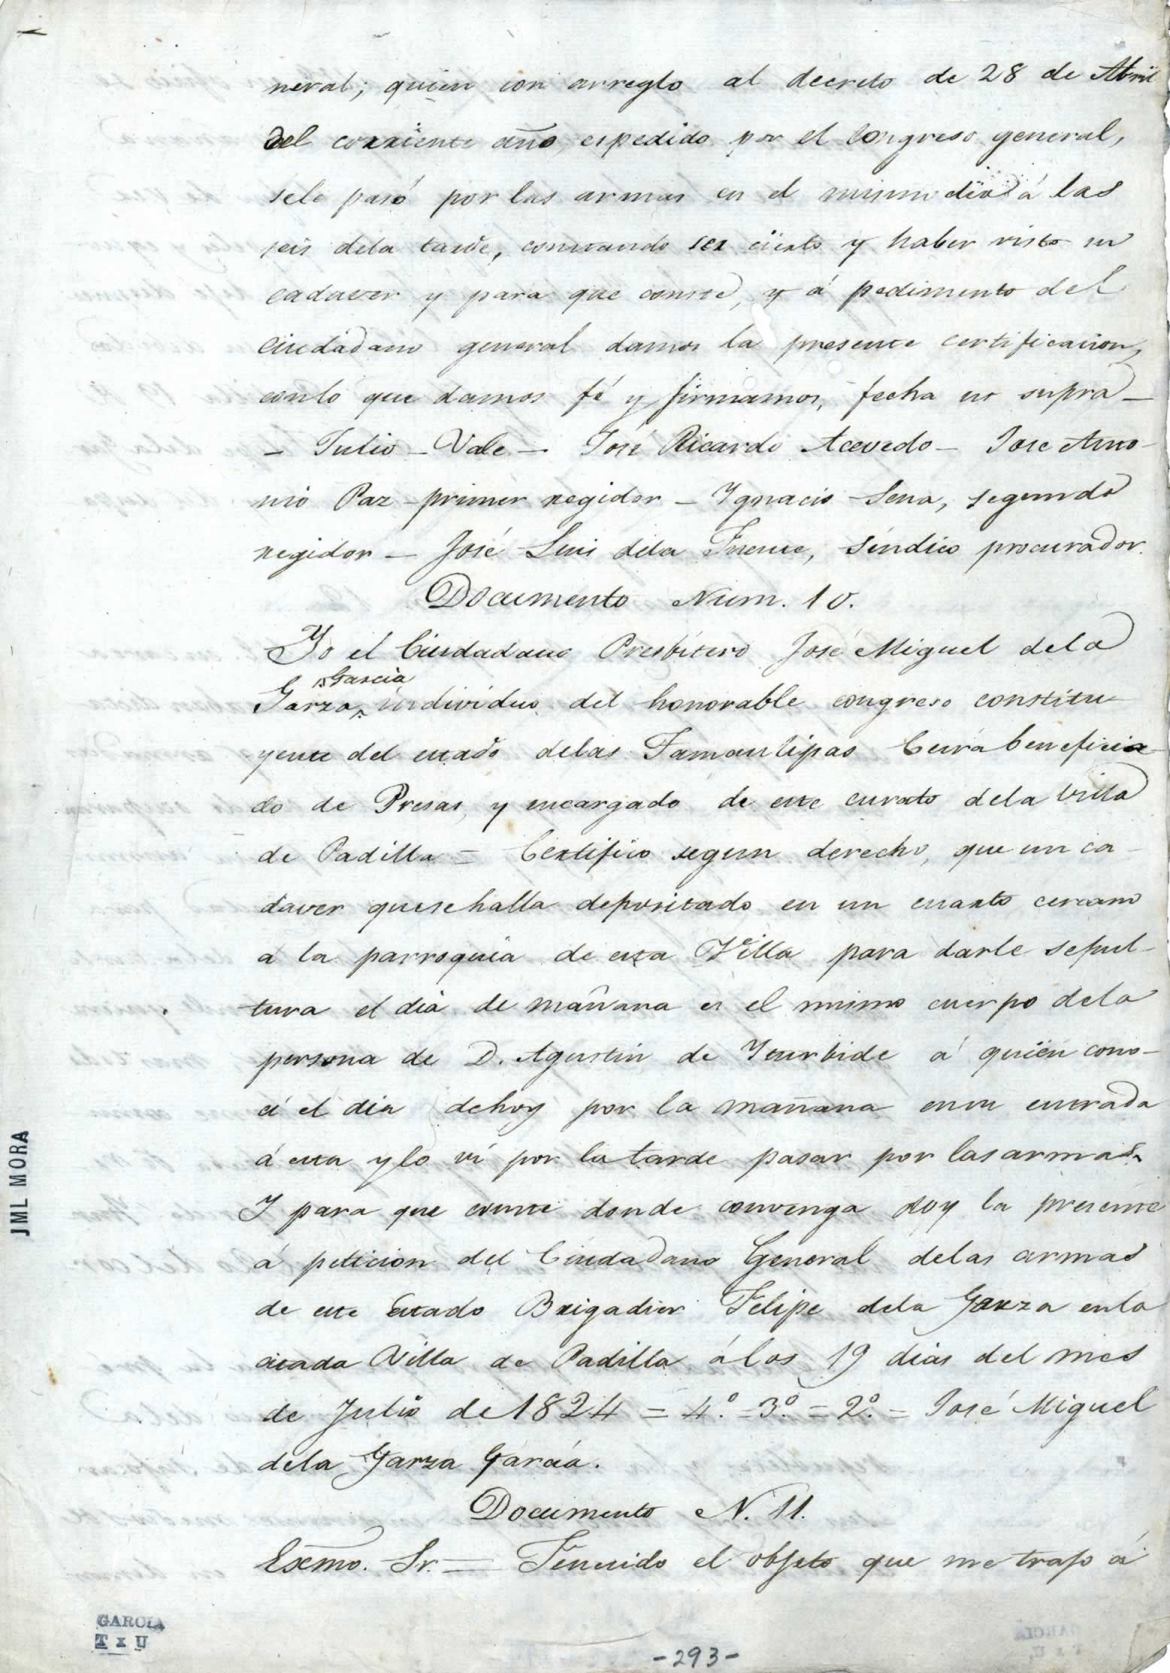 neral; quien con arreglo al decreto de 28 de Abril
del corriente año, espedido por el Congreso general,
sele pasó por las armas en el mismo dia á las
seis dela tarde, constando ser cierto y haber visto su
cadaver y para que conste, y á pedimento del
ciudadano general damos la presente certificacion,
conlo que damos fé y firmamos, fecha ut supra —
— Julio — Vale — José Ricardo Acevedo — Jose Anto-
nio Paz — primer regidor — Ygnacio Sena, segundo
regidor — José Luis dela Fuente, síndico procurador.
Documento Núm. 10.
Yo el Ciudadano Presbitero José Miguel dela
Garcia
Garza, individuo del honorable congreso constitu
yente del estado delas Tamaulipas Cura beneficia-
do de Presas, y encargado de este curato dela Villa
de Padilla = Certifico segun derecho, que un ca-
daver quese halla depositado en un cuarto cercano
á la parroquia de esta Villa para darle sepul-
tura el dia de mañana es el mismo cuerpo dela
persona de D. Agustin de Yturbide á quien cono-
cí el dia dehoy por la mañana ensu entrada
á esta ylo ví por la tarde pasar por las armas.
Y para que conste donde convenga doy la presente
á peticion del Ciudadano General delas armas
de este Estado Brigadier Felipe dela Garza enla
citada Villa de Padilla álos 19 dias del mes
de Julio de 1824 = 4.º = 3.º = 2.º = José Miguel
dela Garza García.
Documento N. 11.
Exmo. Sr. = Fenecido el objeto que me trajo á
JML MORA
GARCIA
T x U
-293-